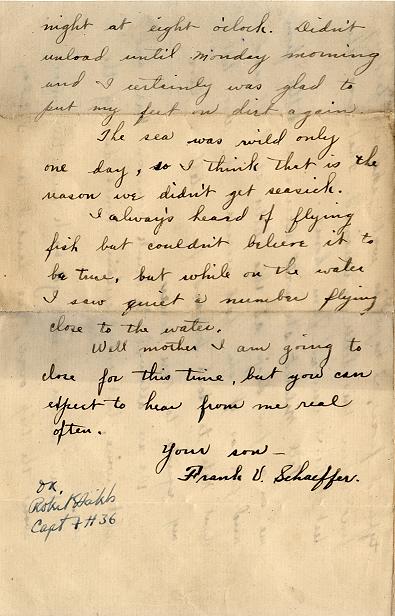 night at eight o'clock. Didn't
unload until Monday morning
and I certainly was glad to
put my feet on dirt again.
The sea was wild only
one day, so I think that is the
reason we didn't get seasick.
I always heard of flying
fish but couldn't believe it to
be true, but while on the water
I saw quiet a number flying
close to the water.
Well mother I am going to
close for this time, but you can
expect to hear from me real
often.
Your son –
Frank V. Schaeffer.
OK
Capt